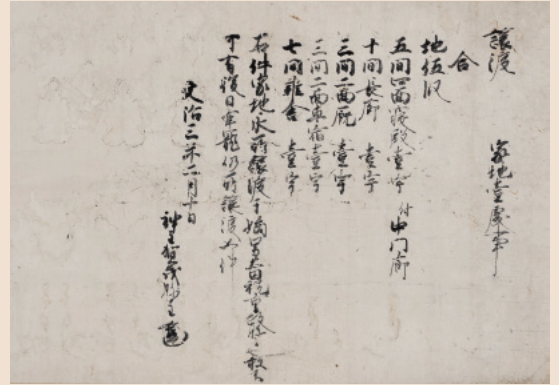 譲渡 家地壹處事
合
地伍段
五間四面寝殿壹宇 付中門廊
十間長廊 壹宇
三間二面厩 壹宇
三間二面車宿壹宇
七間雜舎 壹宇
右件家地永所譲渡于嫡男
可有後日牢籠仍所譲渡如件
文治三年二月十日
神主